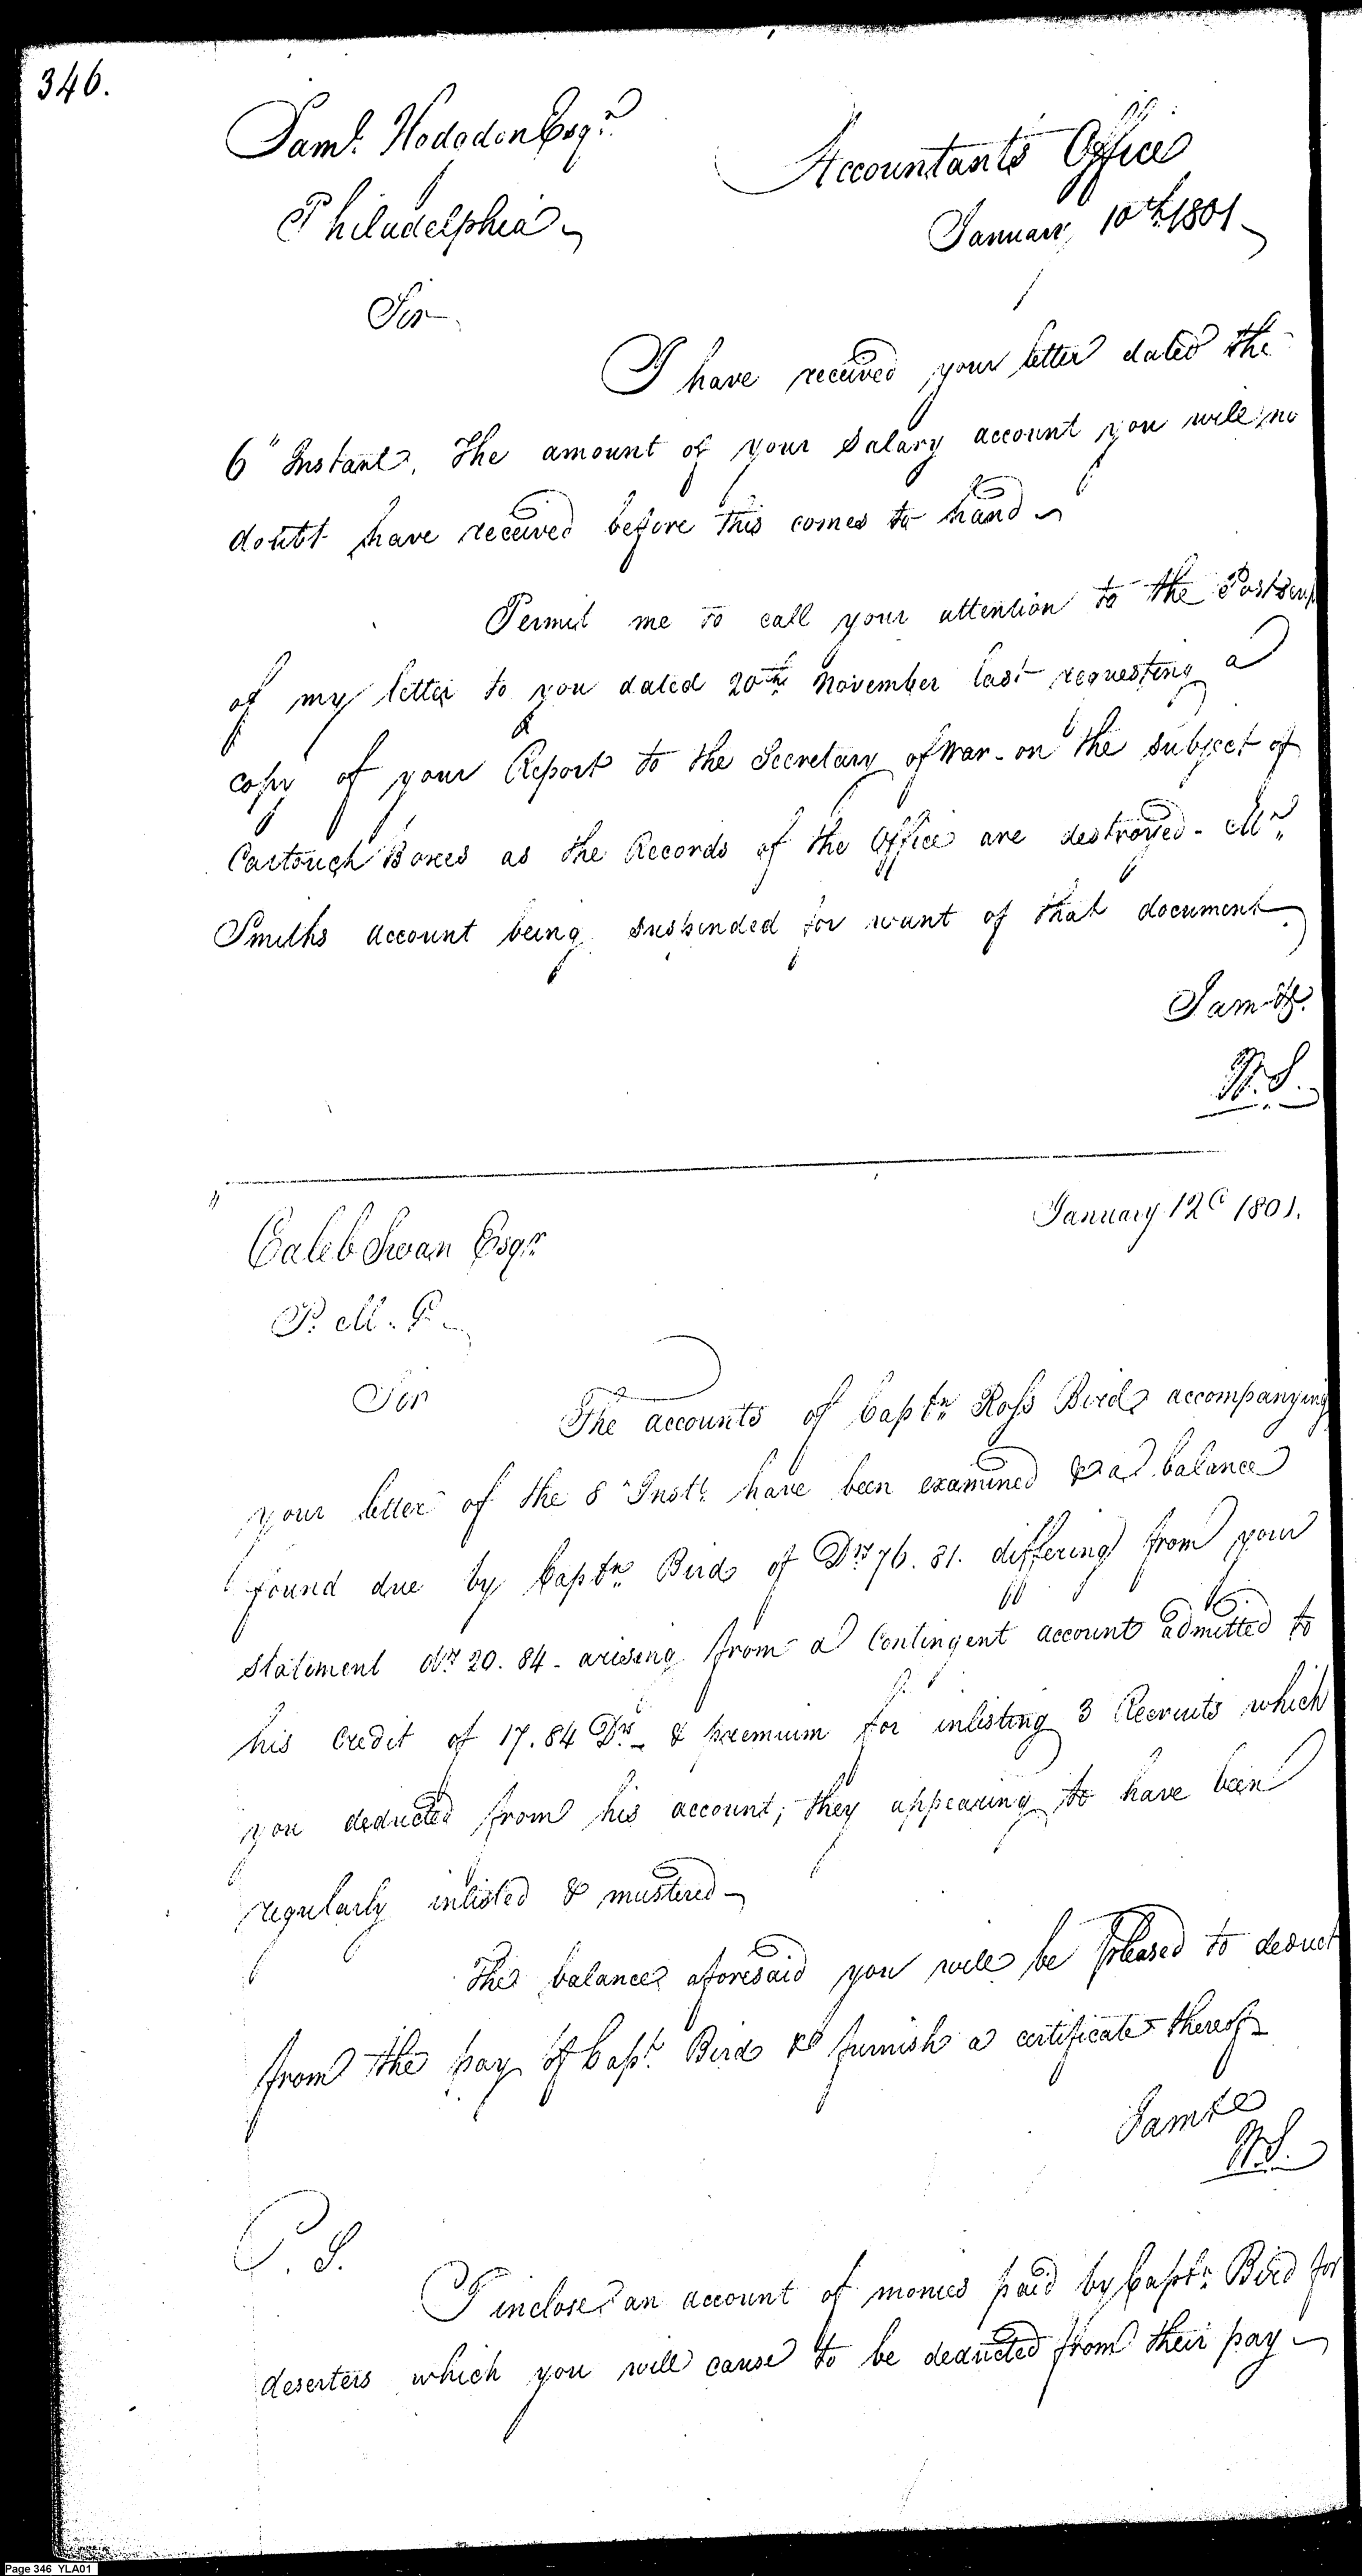 346.
Saml. Hodgdon Esqr.
Accountants Office
Philadelphia
January 10th. 1801
Sir
I have received your letter dated the
6" Instant. The amount of your Salary account you will no
doubt have received before this comes to hand
Permit me to call your attention to the Postscrip
of my letter to you dated 20th. November last requesting a
copy of your Report to the Secretary of War - on the subject of
Cartouch Boxes as the Records of the Office are destroyed - Mr.
Smiths account being suspended for want of that document
I am &c.
W. S.
January 12th 1801.
Caleb Swan Esqr.
P. M. G.
Sir
The accounts of Captn. Ross Bird accompanying
your letter of the 8" Inst. have been examined & a balance
found due by Captn. Bird of Drs 76. 31. differing from your
statement Drs 20. 84 - arising from a Contingent account admitted to
his Credit of 17. 84 Drs. & premium for inlisting 3 Recruits which
you deducted from his account; they appearing to have been
regularly inlisted & mustered -
The balance aforesaid you will be pleased to deduct
from the pay of Capt. Bird & furnish a certificate thereof
I am &c
W. S.
P. S.
I inclose an account of monies paid by Captn. Bird for
deserters which you will cause to be deducted from their pay
Page 346 YLA01